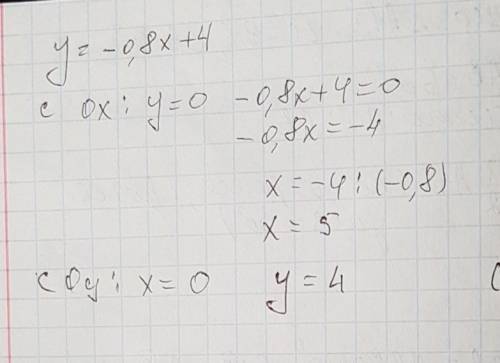 y = -0,8x+4
с ox: y=0 -0,8x+4=0
-0,8x=-4
x = -4 : (-0,8)
x = 5
с оy: x = 0 y = 4
(